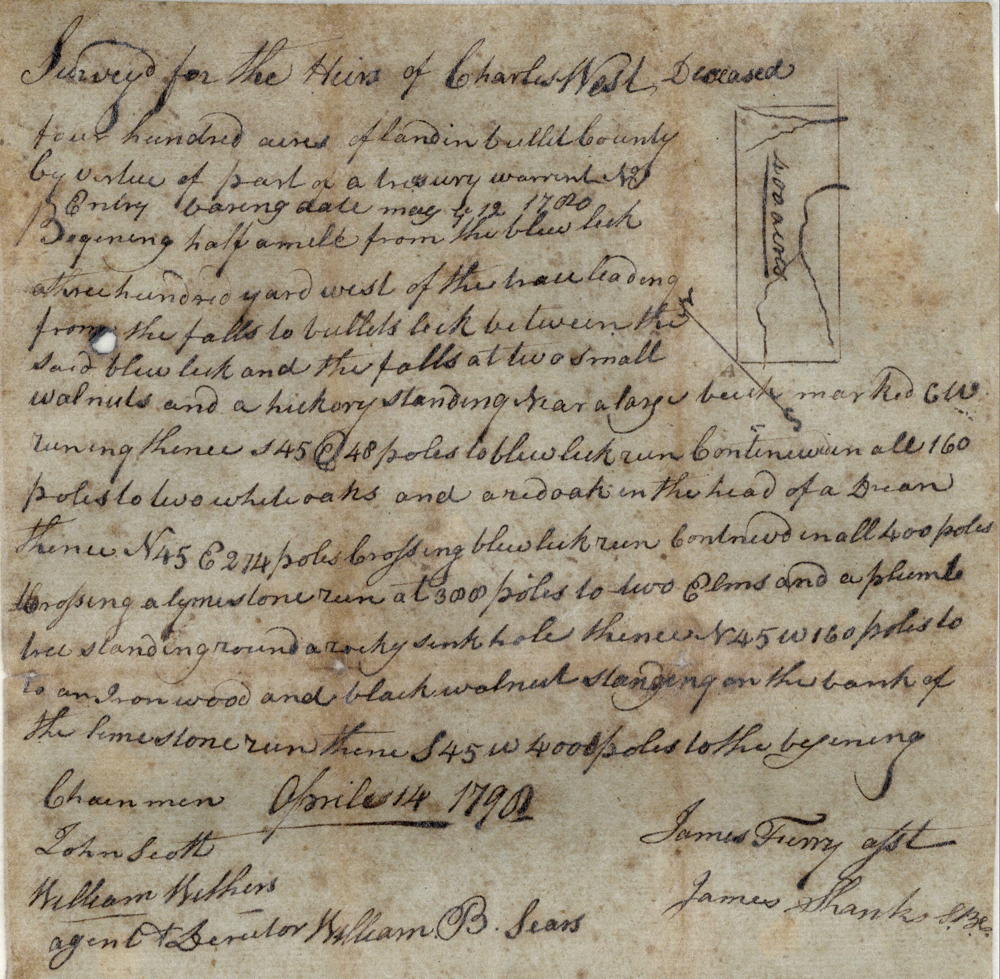 Survey'd for the Heirs of Charles West Deceased
four hundred acres of land in bullit County
by vertue of part of a tresury warrent No
Entry baring date may 12 1780
Begening half a mile from the blew lick
a three hundred yard west of the trace leading
from the falls to bullets lick between the
said blew lick and the falls at two small
walnuts and a hickory standing Near a large beech marked CW
runing thence S45 E 48 poles to blew lick run Continewd in all 160
poles to two white oaks and a red oak in the head of a Drean
thence N45 E 274 poles Crossing blew lick run Contnewd in all 400 poles
Crossing a lymestone run at 388 poles to two Elms and a plumb
tree standing round a rocky sink hole thence N45 W 160 poles to
to an Iron wood and black walnut standing on the bank of
the limestone run thence S45 W 400 poles to the begening
Chain men Aprile 14 179
John Scott
William Withers
agent & Derector William B. Sears
James Furry asst
James Shanks S.B.C.
400 acres
A
N
S